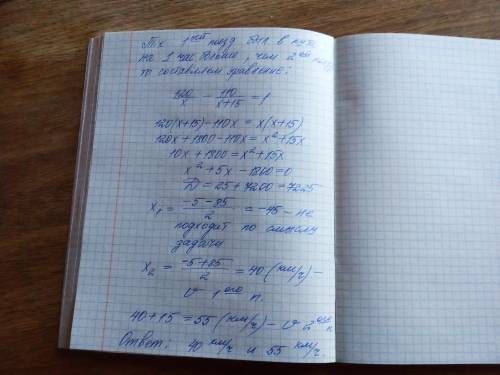 Т.к 1ый поезд был в пути
на 1 час больше, чем 2ой поезд
то составляем уравнение:
120/x - 110/(x+15) = 1
120(x+15)-110x = x(x+15)
120x+1800-110x = x²+15x
10x+1800 = x²+15x
x²+5x-1800=0
D=25+7200=7225
x₁ = (-5-85)/2 = -45 - не
подходит по смыслу
задачи
x₂ = (-5+85)/2 = 40 (км/ч) -
v 1ого п.
40+15=55 (км/ч) - v 2ого п
Ответ: 40 км/ч и 55 км/ч.